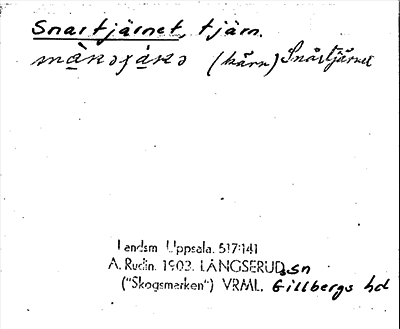 Snartjärnet, tjärn.
(kärn) Snårtjärnet
Landsm Uppsala. 517:141
A. Rudin. 1903. LÅNGSERUD sn
("Skogsmarken") VRML. Gillbergs hd